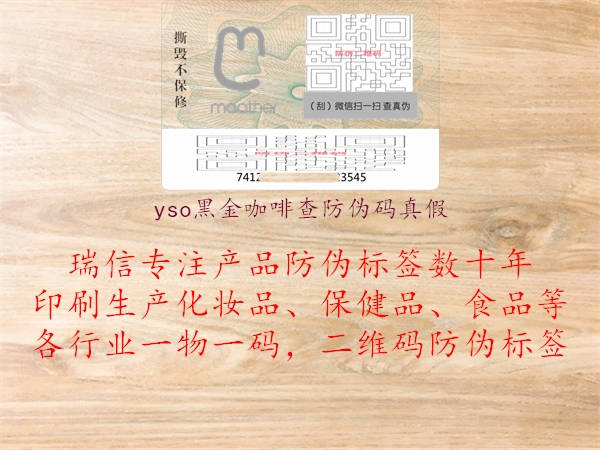 撕毁不保修
防伪二维码
maother
(刮)微信扫一扫 查真伪
7412 3545
yso黑金咖啡查防伪码真假
瑞信专注产品防伪标签数十年
印刷生产化妆品、保健品、食品等
各行业一物一码，二维码防伪标签